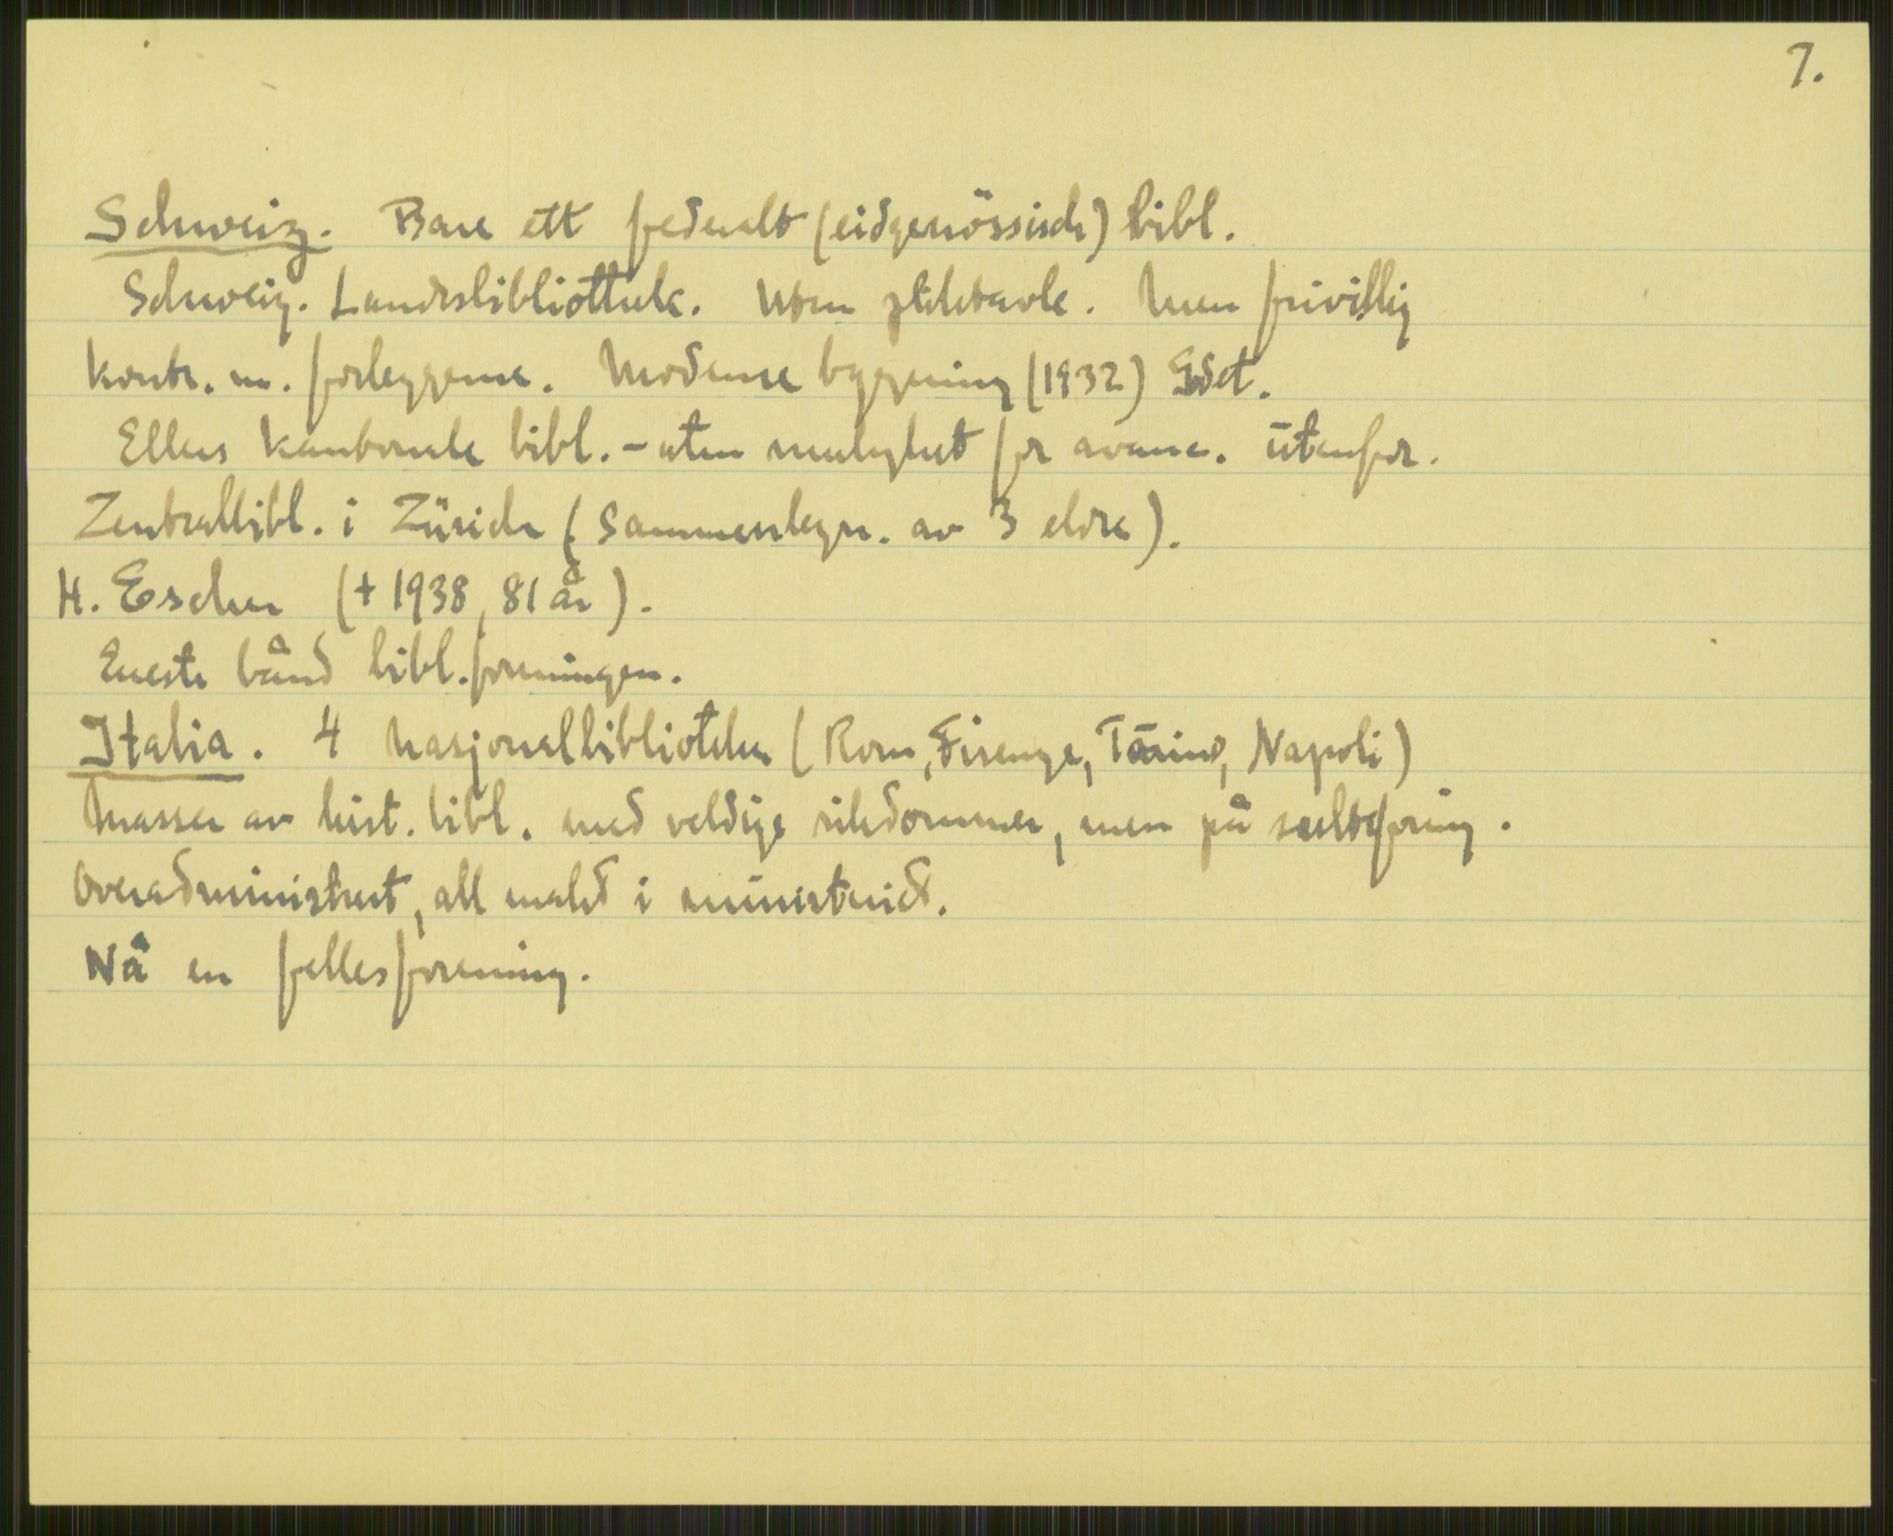 7.
Schweiz. Bare ett federalt (eidgenössisch) bibl.
Schweiz. Landesbibliothek. Uten pliktavle. Men frivillig
kontr. m. forleggerne. Moderne bygning (1932)
Ellers kantonale bibl. - uten mulighet for avanc. utenfor.
Zentralbibl. i Zürich (Sammenlegn. av 3 eldre).
H. Escher († 1938, 81 år).
Eneste bånd bibl.foreningen.
Italia. 4 nasjonalbiblioteker (Rom, Firenze, Torino, Napoli)
Masser av hist. bibl. med veldige rikdommer, men på sultefôring.
Overadministrert, all makt i ministeriet.
Nå en fellesforening.